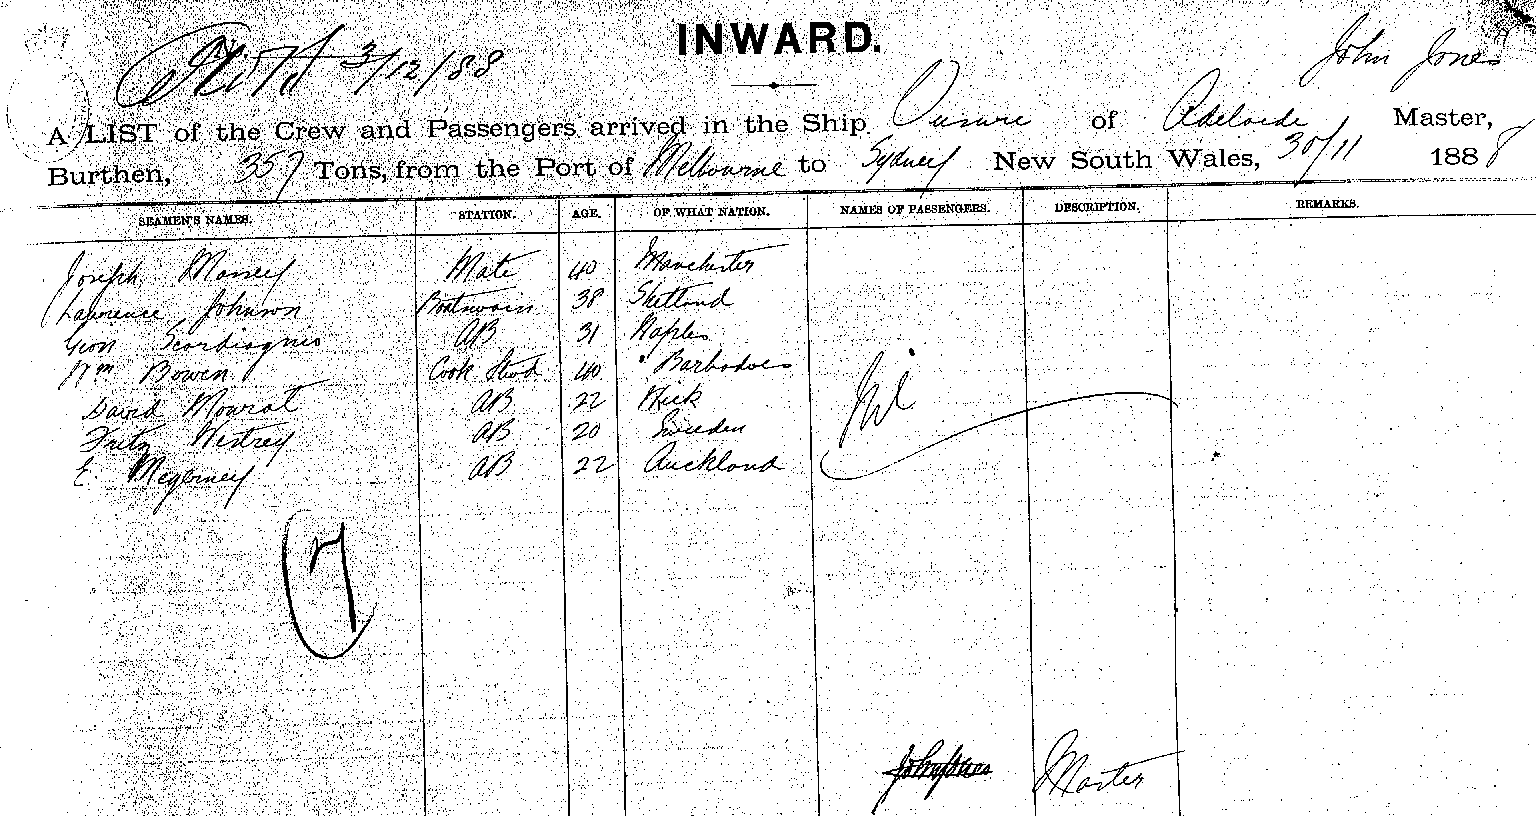 INWARD.
3/12/88
John Jones
A LIST of the Crew and Passengers arrived in the Ship of Adelaide Master,
Burthen, 357 Tons, from the Port of Melbourne to Sydney New South Wales, 30/11 1888
SEAMEN'S NAMES. STATION. AGE. OF WHAT NATION. NAMES OF PASSENGERS. DESCRIPTION. REMARKS.
Joseph Mate 40 Manchester
Lawrence Johnson Boatswain 38 Shetland
AB 31 Naples
Wm Bowen Cook Stwd 40 Barbadoes
David Mourat AB 22 Wick
Fritz Westrey AB 20 Sweden
E. AB 22 Auckland
Nil
7
John Jones Master